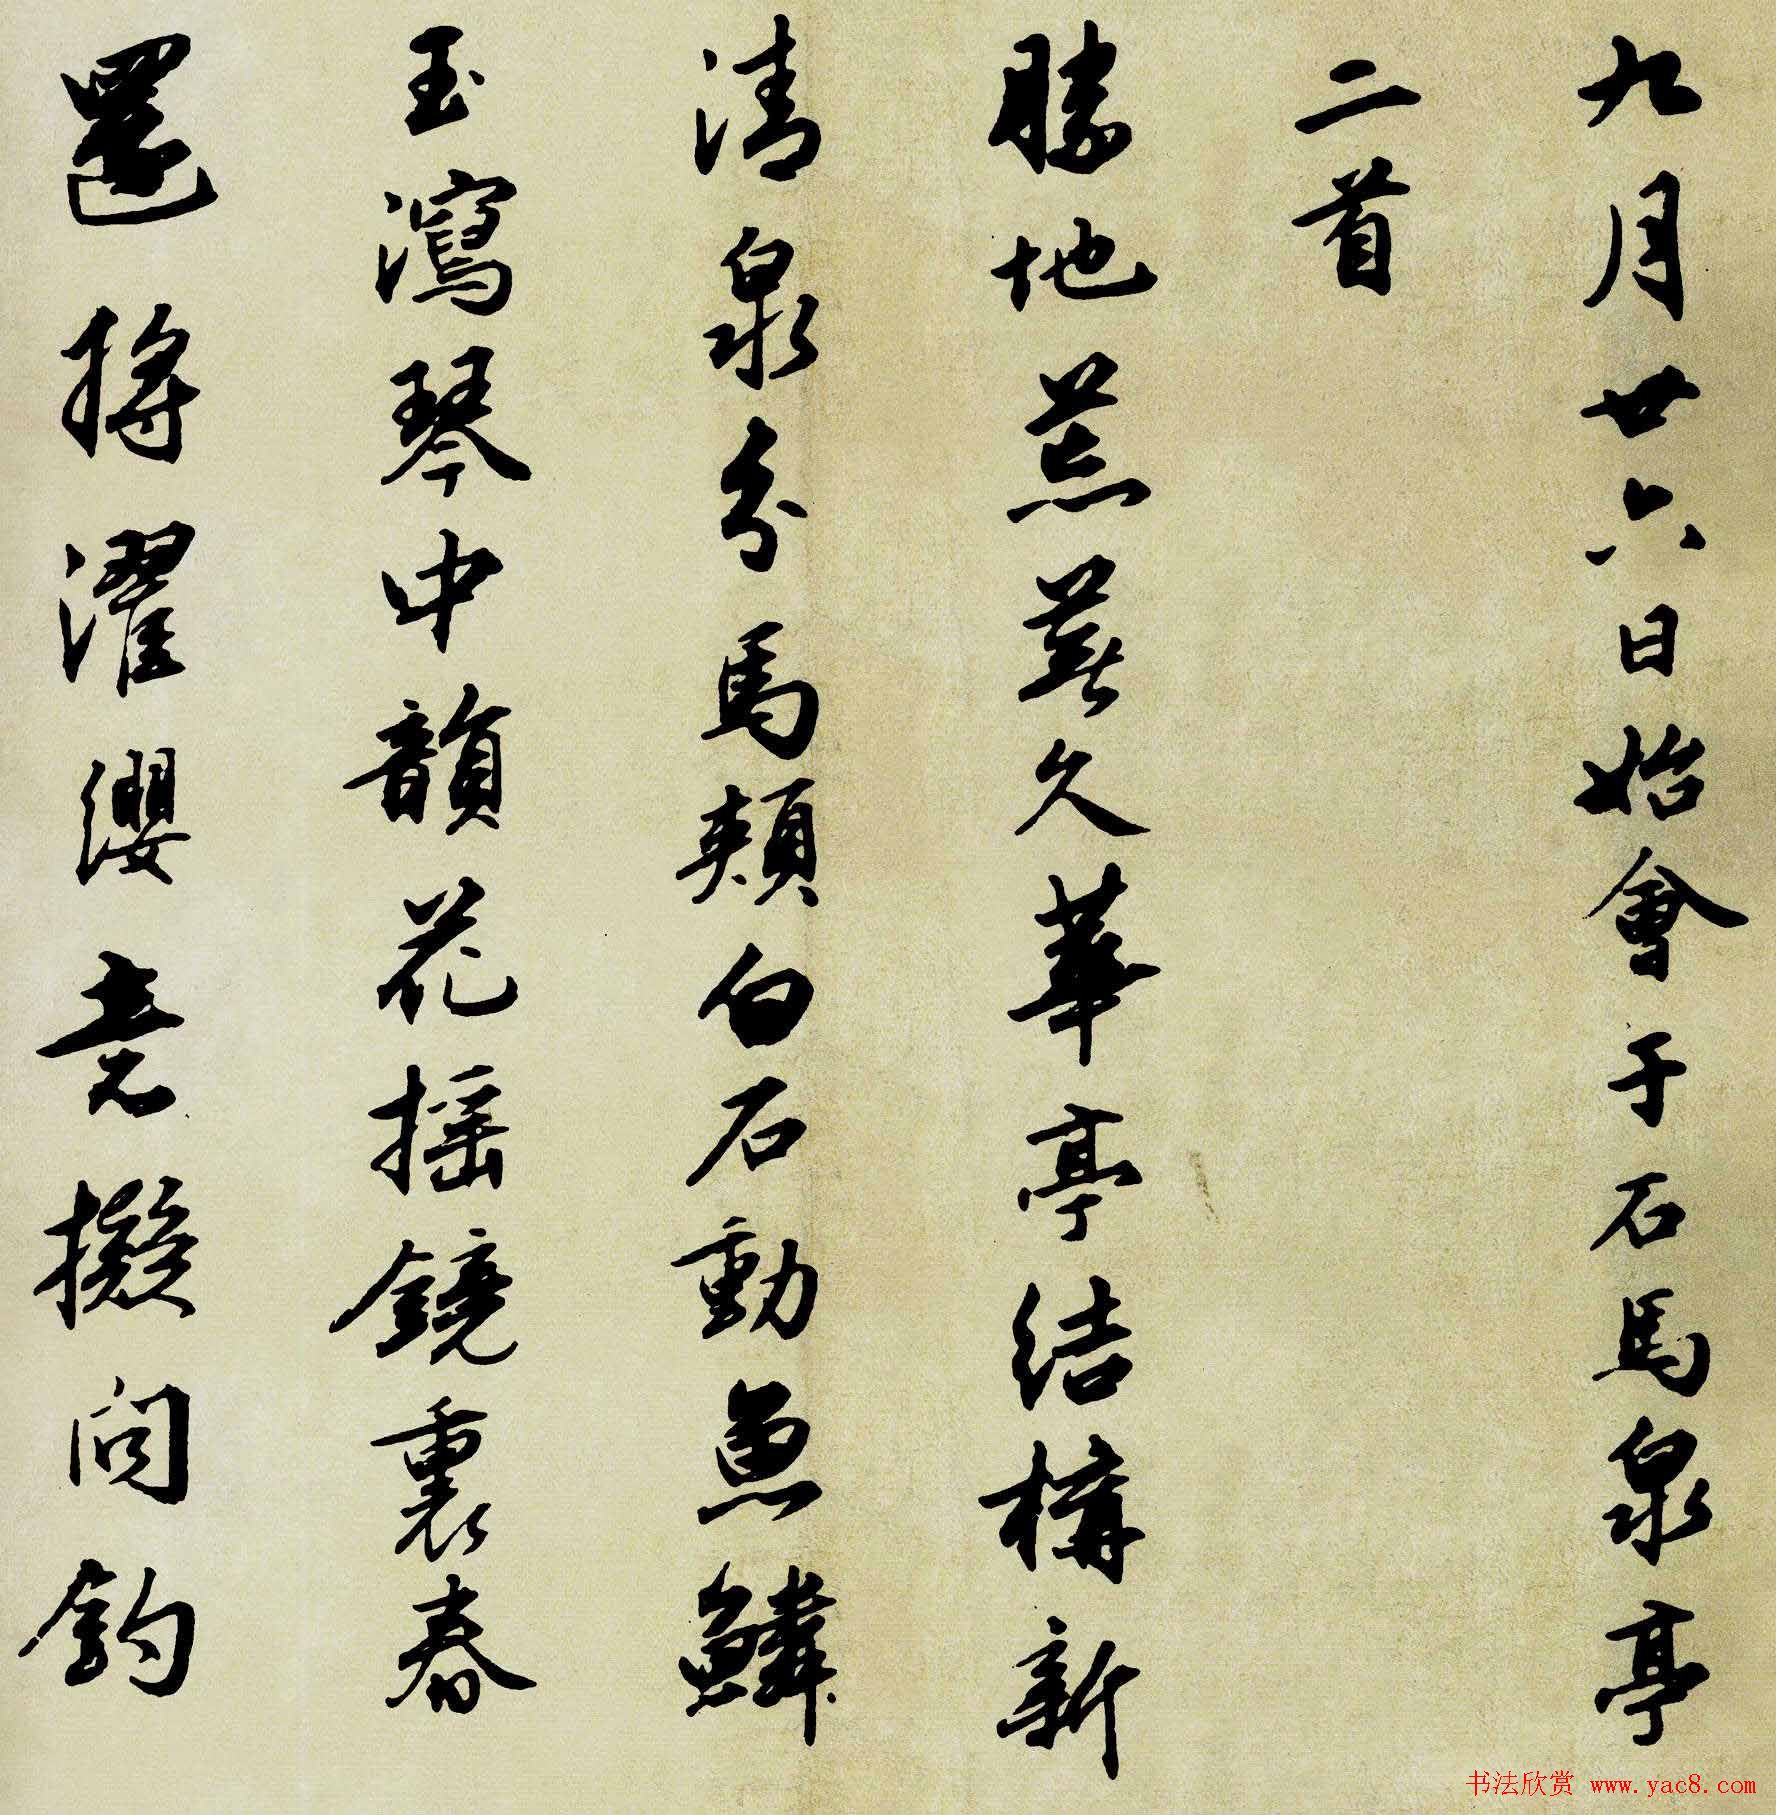 九月廿六日始會于石馬泉亭
二首
勝地荒蕪久華亭結構新
清泉分馬頰白石動魚鱗
玉瀉琴中韻花搖鏡裏春
還將濯纓意擬問釣
书法欣赏 www.yac8.com